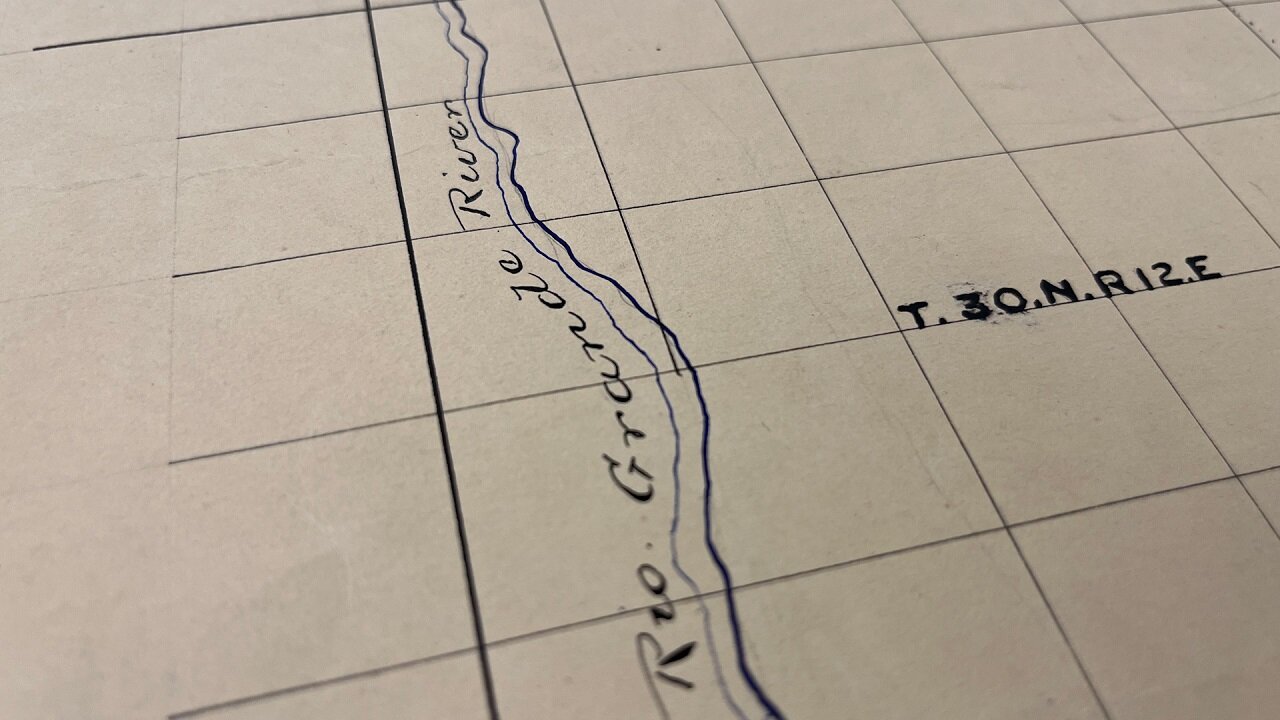 Rio. Grande River
T. 30.N.R12.E